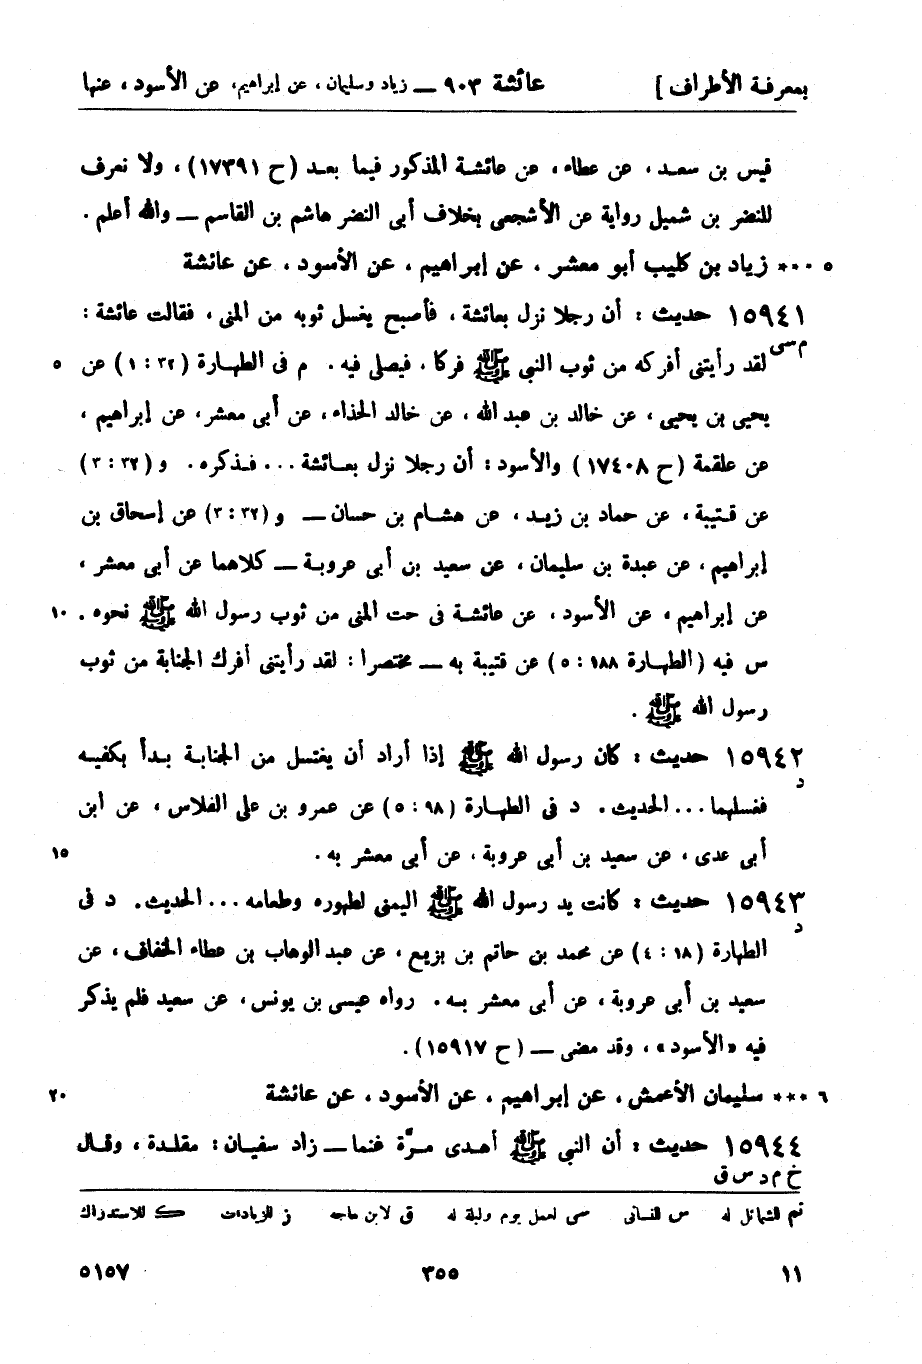 بمعرفة الأطراف ] عائشة ٩٠٣ — زياد وسليمان ، عن إبراهيم، عن الأسود ، عنها
قيس بن سعد ، عن عطاء ، عن عائشة المذكور فيما بعد (ح ١٧٣٩١) ، ولا نعرف
للنضر بن شميل رواية عن الأشجعى بخلاف أبى النضر هاشم بن القاسم — والله أعلم .
٥ *** زياد بن كليب أبو معشر ، عن إبراهيم ، عن الأسود ، عن عائشة
١٥٩٤١ حديث : أن رجلا نزل بعائشة ، فأصبح يغسل ثوبه من المنى ، فقالت عائشة :
م سى لقد رأيتنى أفركه من ثوب النبى ﷺ فركا ، فيصلى فيه . م فى الطهارة (٣٢ : ١) عن ٥
يحيى بن يحيى ، عن خالد بن عبد الله ، عن خالد الحذاء ، عن أبى معشر ، عن إبراهيم ،
عن علقمة (ح ١٧٤٠٨) والأسود : أن رجلا نزل بعائشة ... فذكره . و (٣٢ : ٣)
عن قتيبة ، عن حماد بن زيد ، عن هشام بن حسان — و (٣٢ : ٣) عن إسحاق بن
إبراهيم ، عن عبدة بن سليمان ، عن سعيد بن أبى عروبة — كلاهما عن أبى معشر ،
عن إبراهيم ، عن الأسود ، عن عائشة فى حت المنى من ثوب رسول الله ﷺ نحوه . ١٠
س فيه (الطهارة ١٨٨ : ٥) عن قتيبة به — مختصرا : لقد رأيتنى أفرك الجنابة من ثوب
رسول الله ﷺ .
١٥٩٤٢ حديث : كان رسول الله ﷺ إذا أراد أن يغتسل من الجنابة بدأ بكفيه
د فغسلهما ... الحديث . د فى الطهارة (٩٨ : ٥) عن عمرو بن على الفلاس ، عن ابن
أبى عدى ، عن سعيد بن أبى عروبة ، عن أبى معشر به . ١٥
١٥٩٤٣ حديث : كانت يد رسول الله ﷺ اليمنى لطهوره وطعامه ... الحديث . د فى
د الطهارة (١٨ : ٤) عن محمد بن حاتم بن بزيع ، عن عبد الوهاب بن عطاء الخفاف ، عن
سعيد بن أبى عروبة ، عن أبى معشر به . رواه عيسى بن يونس ، عن سعيد فلم يذكر
فيه «الأسود» ، وقد مضى — (ح ١٥٩١٧) .
٦ *** سليمان الأعمش ، عن إبراهيم ، عن الأسود ، عن عائشة ٢٠
١٥٩٤٤ حديث : أن النبى ﷺ أهدى مرّة غنما — زاد سفيان : مقلدة ، وقال
خ م د س ق
تم للشمائل له س للنسائى سى لعمل يوم وليلة له ق لابن ماجه ز للزيادات ك للاستدراك
١١ ٣٥٥ ٥١٥٧